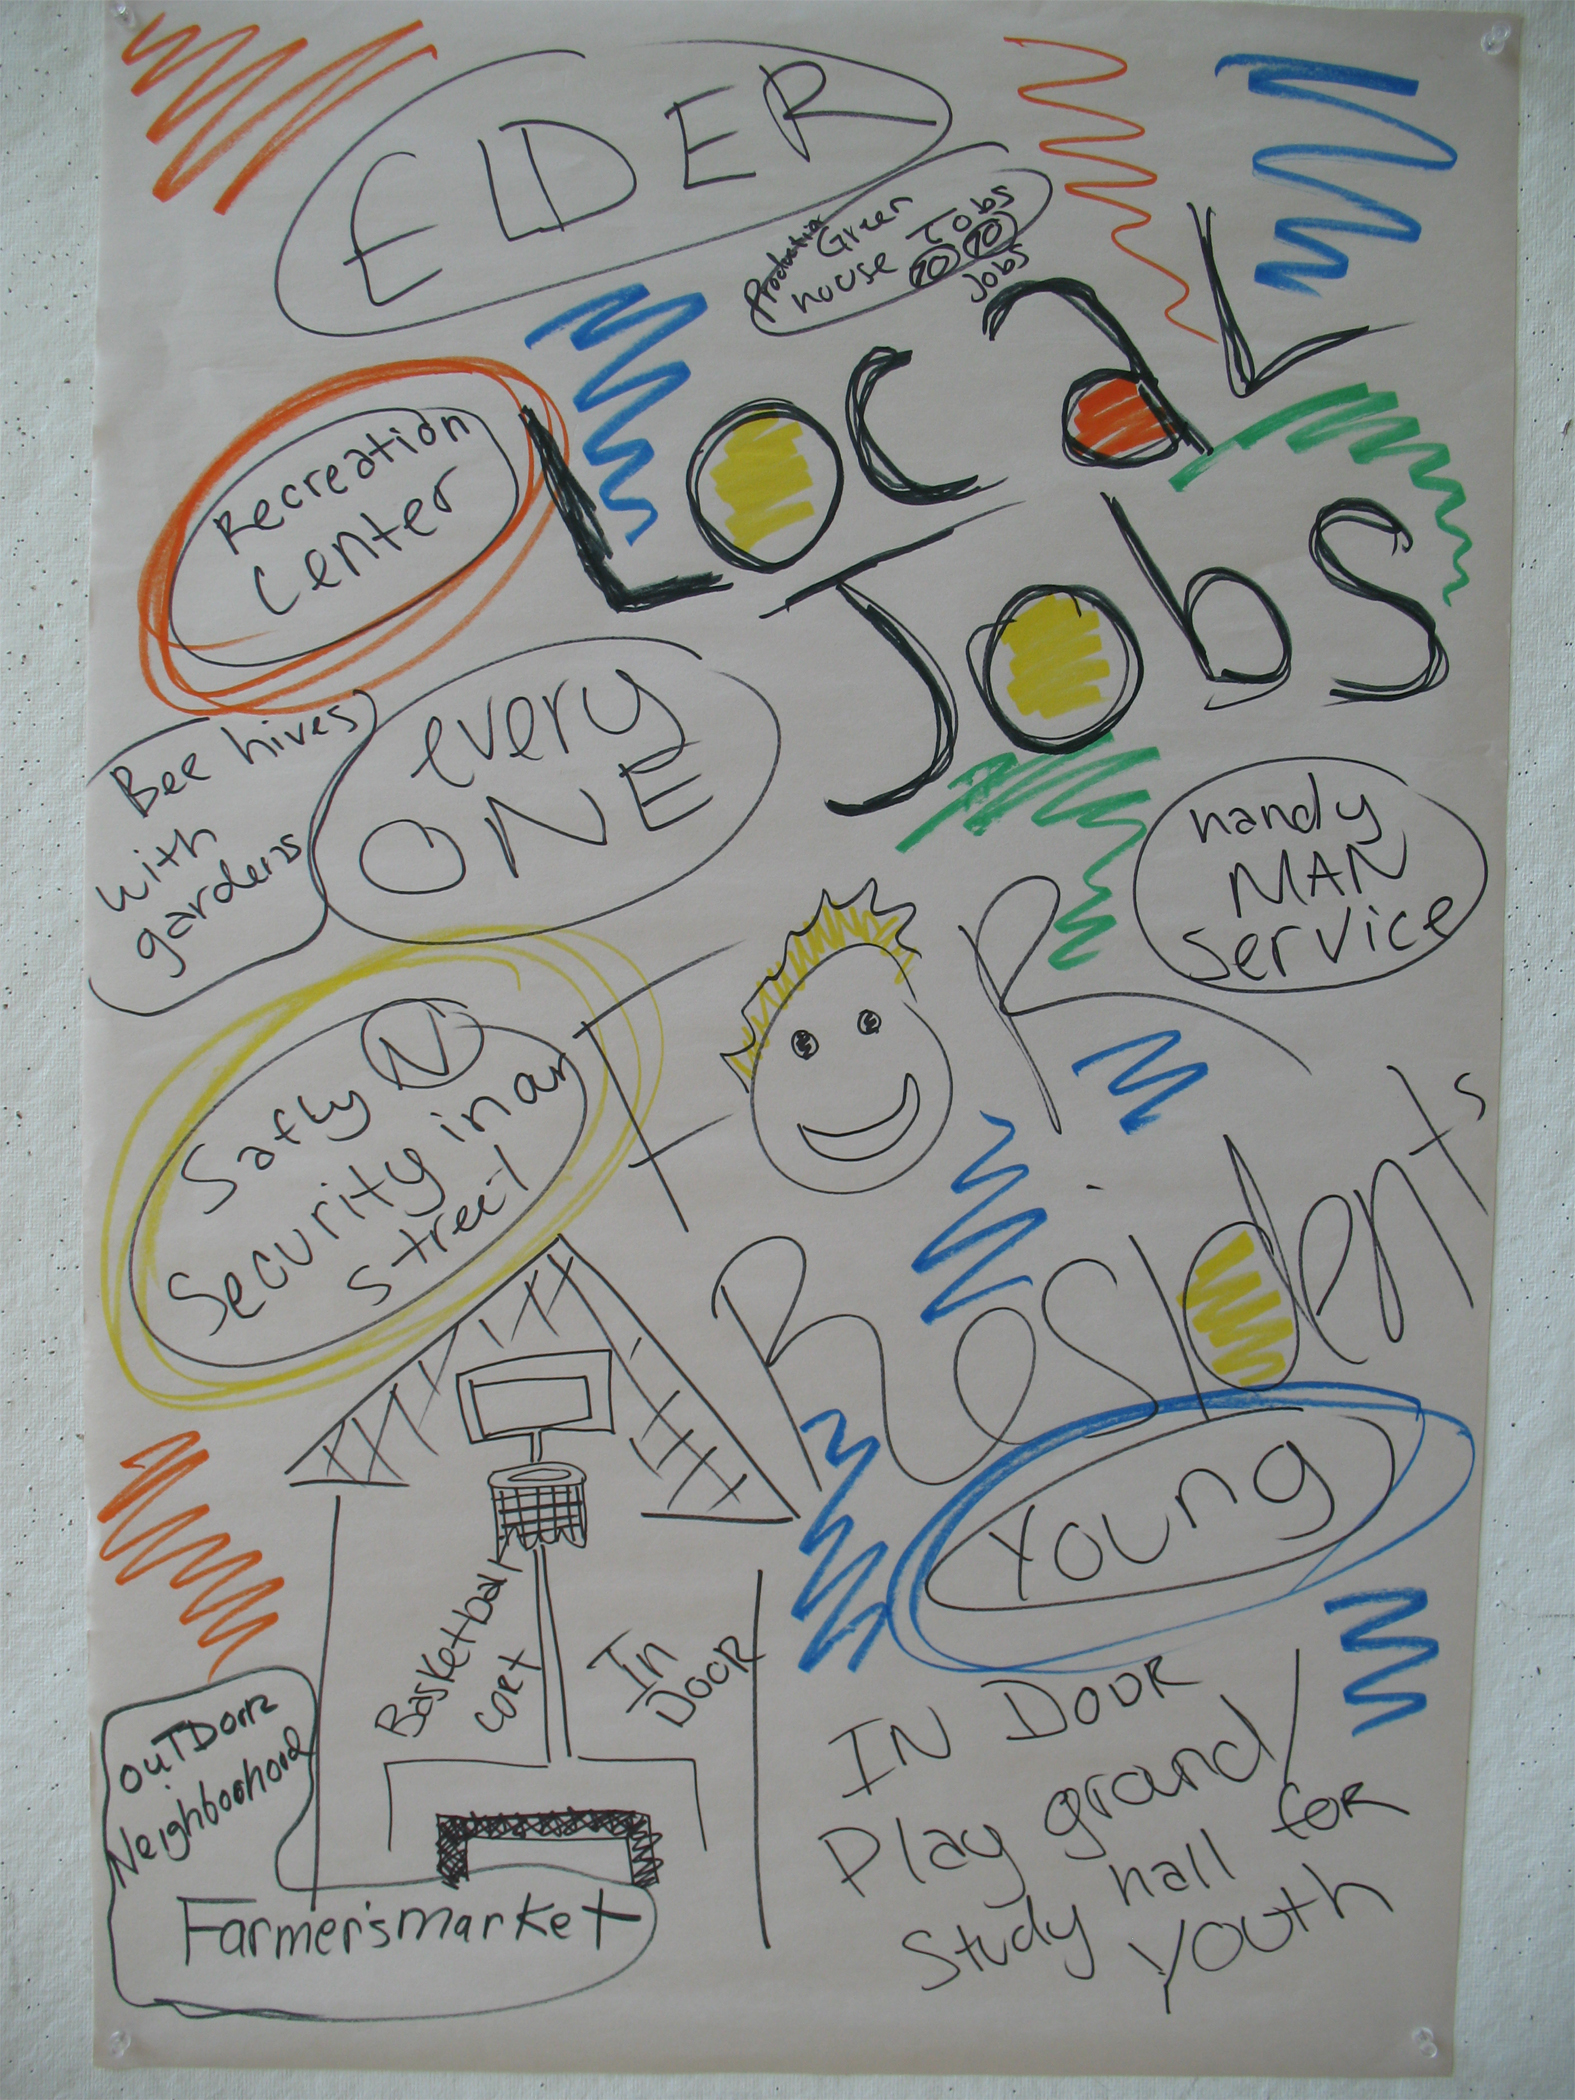 ELDER
Production
Green
house Jobs
Jobs
LOcaL
Jobs
Recreation
Center
every
ONE
Bee hives
with
gardens
handy
MAN
Service
FOR
Residents
Safty N
Security in ar
street
Young
Basketball
cort
In
DOOR
IN DOOR
Play ground/
Study hall for
youth
ouTDorr
Neighborhood
Farmer'smarket